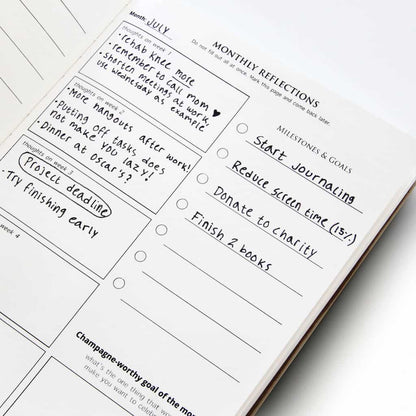 Month: JULY
MONTHLY REFLECTIONS
Do not fill out all at once. Mark this page and come back later.
thoughts on week 1
· rehab knee more
· remember to call mom ♥
· shorten meetings at work,
use wednesday as example
thoughts on week 2
· More hangouts after work!
· Putting off tasks does
not make you lazy!
· Dinner at Oscar's?
thoughts on week 3
Project deadline
· Try finishing early
week 4
MILESTONES & GOALS
Start Journaling
Reduce screen time (15%)
Donate to charity
Finish 2 books
Champagne-worthy goal of the mon
what's the one thing that wo
make you want to celebr